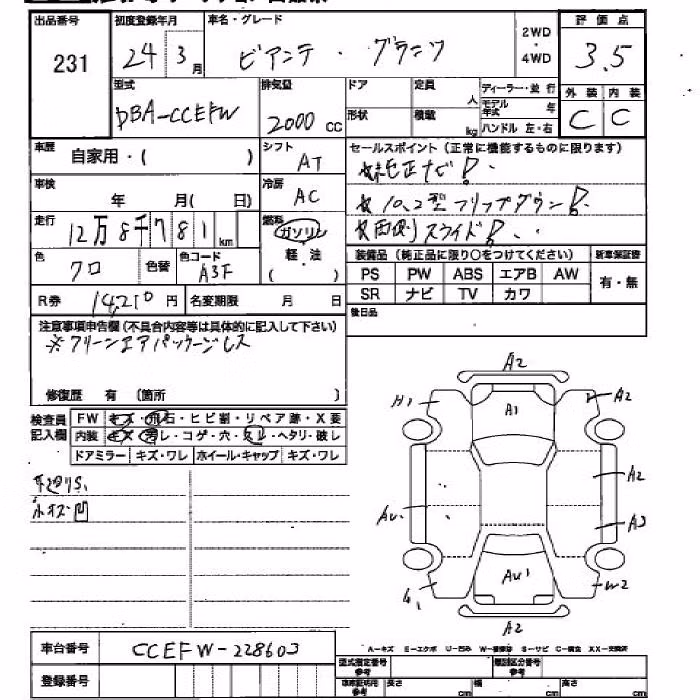 出品番号 初度登録年月 車名・グレード 2WD・4WD 評価点
231 24 3月 ビアンテ・グランツ 3.5
型式 排気量 ドア 定員 人 ディーラー・並行 外装 内装
DBA-CCEFW 2000cc 形状 積載 kg モデル年式 年 C C
ハンドル 左・右
車歴 自家用・( ) シフト AT セールスポイント(正常に機能するものに限ります)
☆純正ナビ!
車検 年 月( 日) 冷房 AC ☆10.2型フリップダウン!
走行 12万8千781km 燃料 ガソリン ☆両側スライド!
軽・油
( )
色 クロ 色替 色コード A3F 装備品(純正品に限り○をつけてください) 新車保証書
PS PW ABS エアB AW 有・無
R券 14,210円 名変期限 月 日 SR ナビ TV カワ
後日品
注意事項申告欄(不具合内容等は具体的に記入して下さい)
※クリーンエアパッケージレス
修復歴 有 (箇所 )
検査員記入欄 FW キズ・飛石・ヒビ割・リペア跡・X要
内装 キズ・汚レ・コゲ・穴・スレ・ヘタリ・破レ
ドアミラー キズ・ワレ ホイール・キャップ キズ・ワレ
A2
H1 A1 A2
A2
AU A2
AU1 W2
A2
A-キズ E-エクボ U-凹ミ W-補修跡 S-サビ C-腐食 XX-交換済
車台番号 CCEFW-228603
型式指定番号 参考 類別区分番号 参考
登録番号 車庫証明用 参考 長さ cm 幅 cm 高さ cm